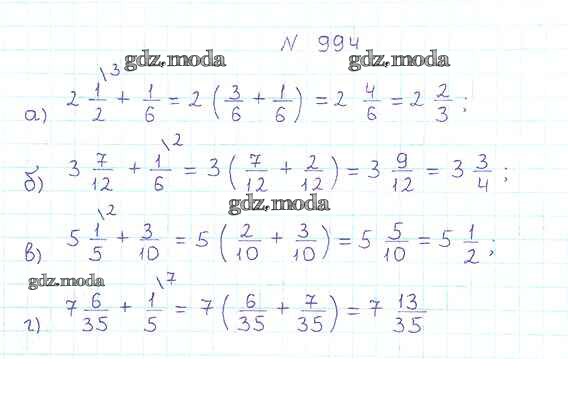 N 994
gdz.moda gdz.moda
а) 2 1/2 \3 + 1/6 = 2 (3/6 + 1/6) = 2 4/6 = 2 2/3 ;
б) 3 7/12 + 1/6 \2 = 3 (7/12 + 2/12) = 3 9/12 = 3 3/4 ;
gdz.moda
в) 5 1/5 \2 + 3/10 = 5 (2/10 + 3/10) = 5 5/10 = 5 1/2 ;
gdz.moda
г) 7 6/35 + 1/5 \7 = 7 (6/35 + 7/35) = 7 13/35